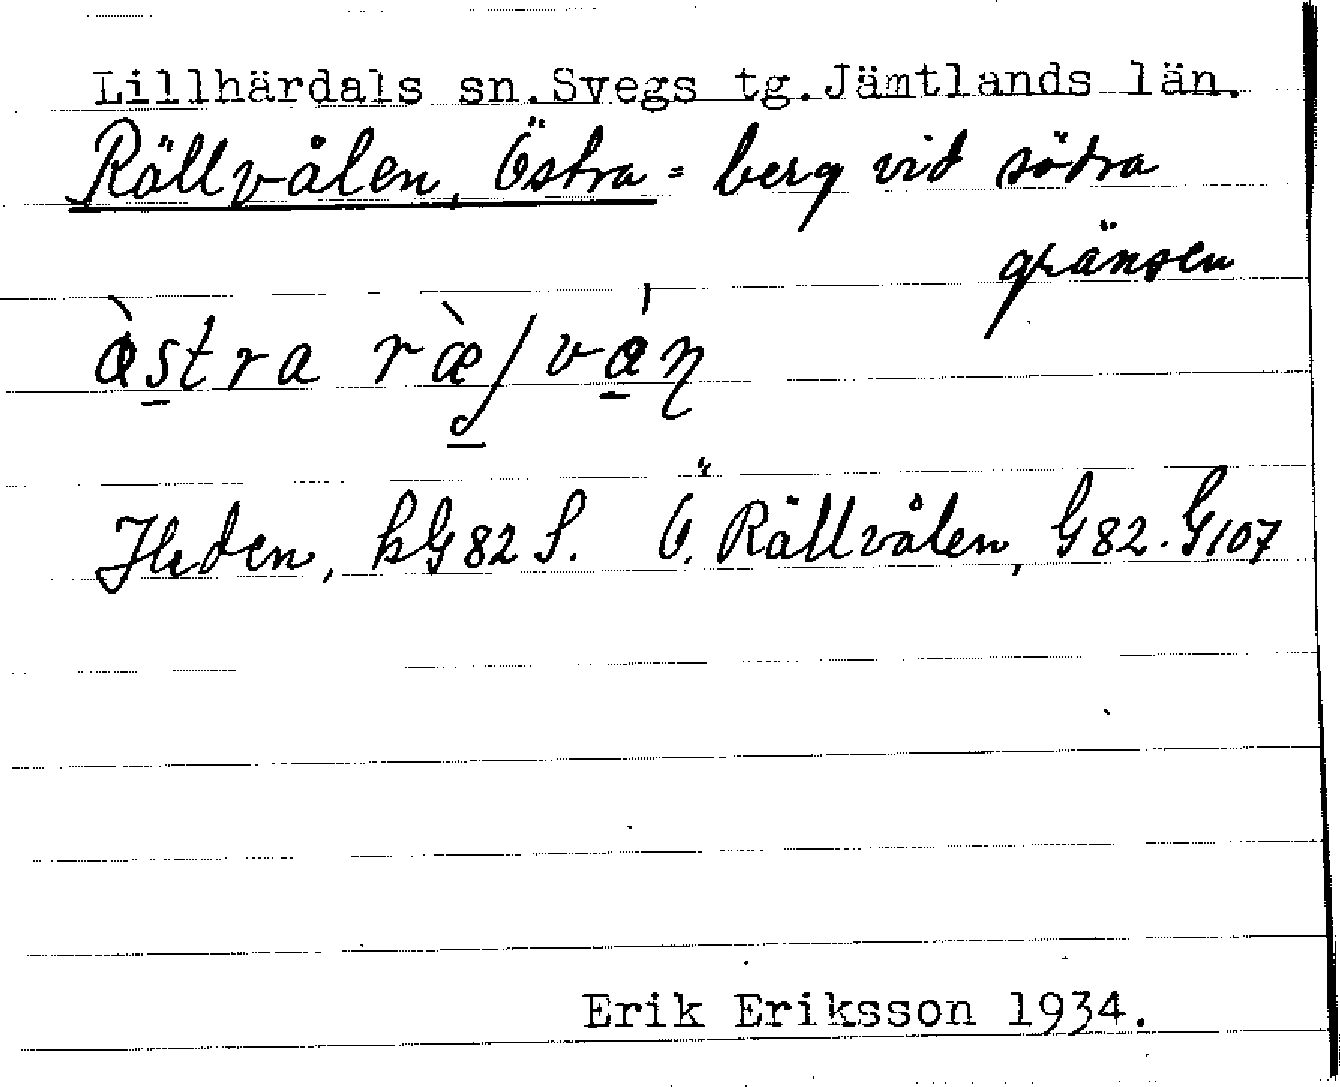 Lillhärdals sn. Svegs tg. Jämtlands län.
Rällvålen, Östra = berg vid södra
gränsen
Ö. Rällvålen, G82. G107
Erik Eriksson 1934.